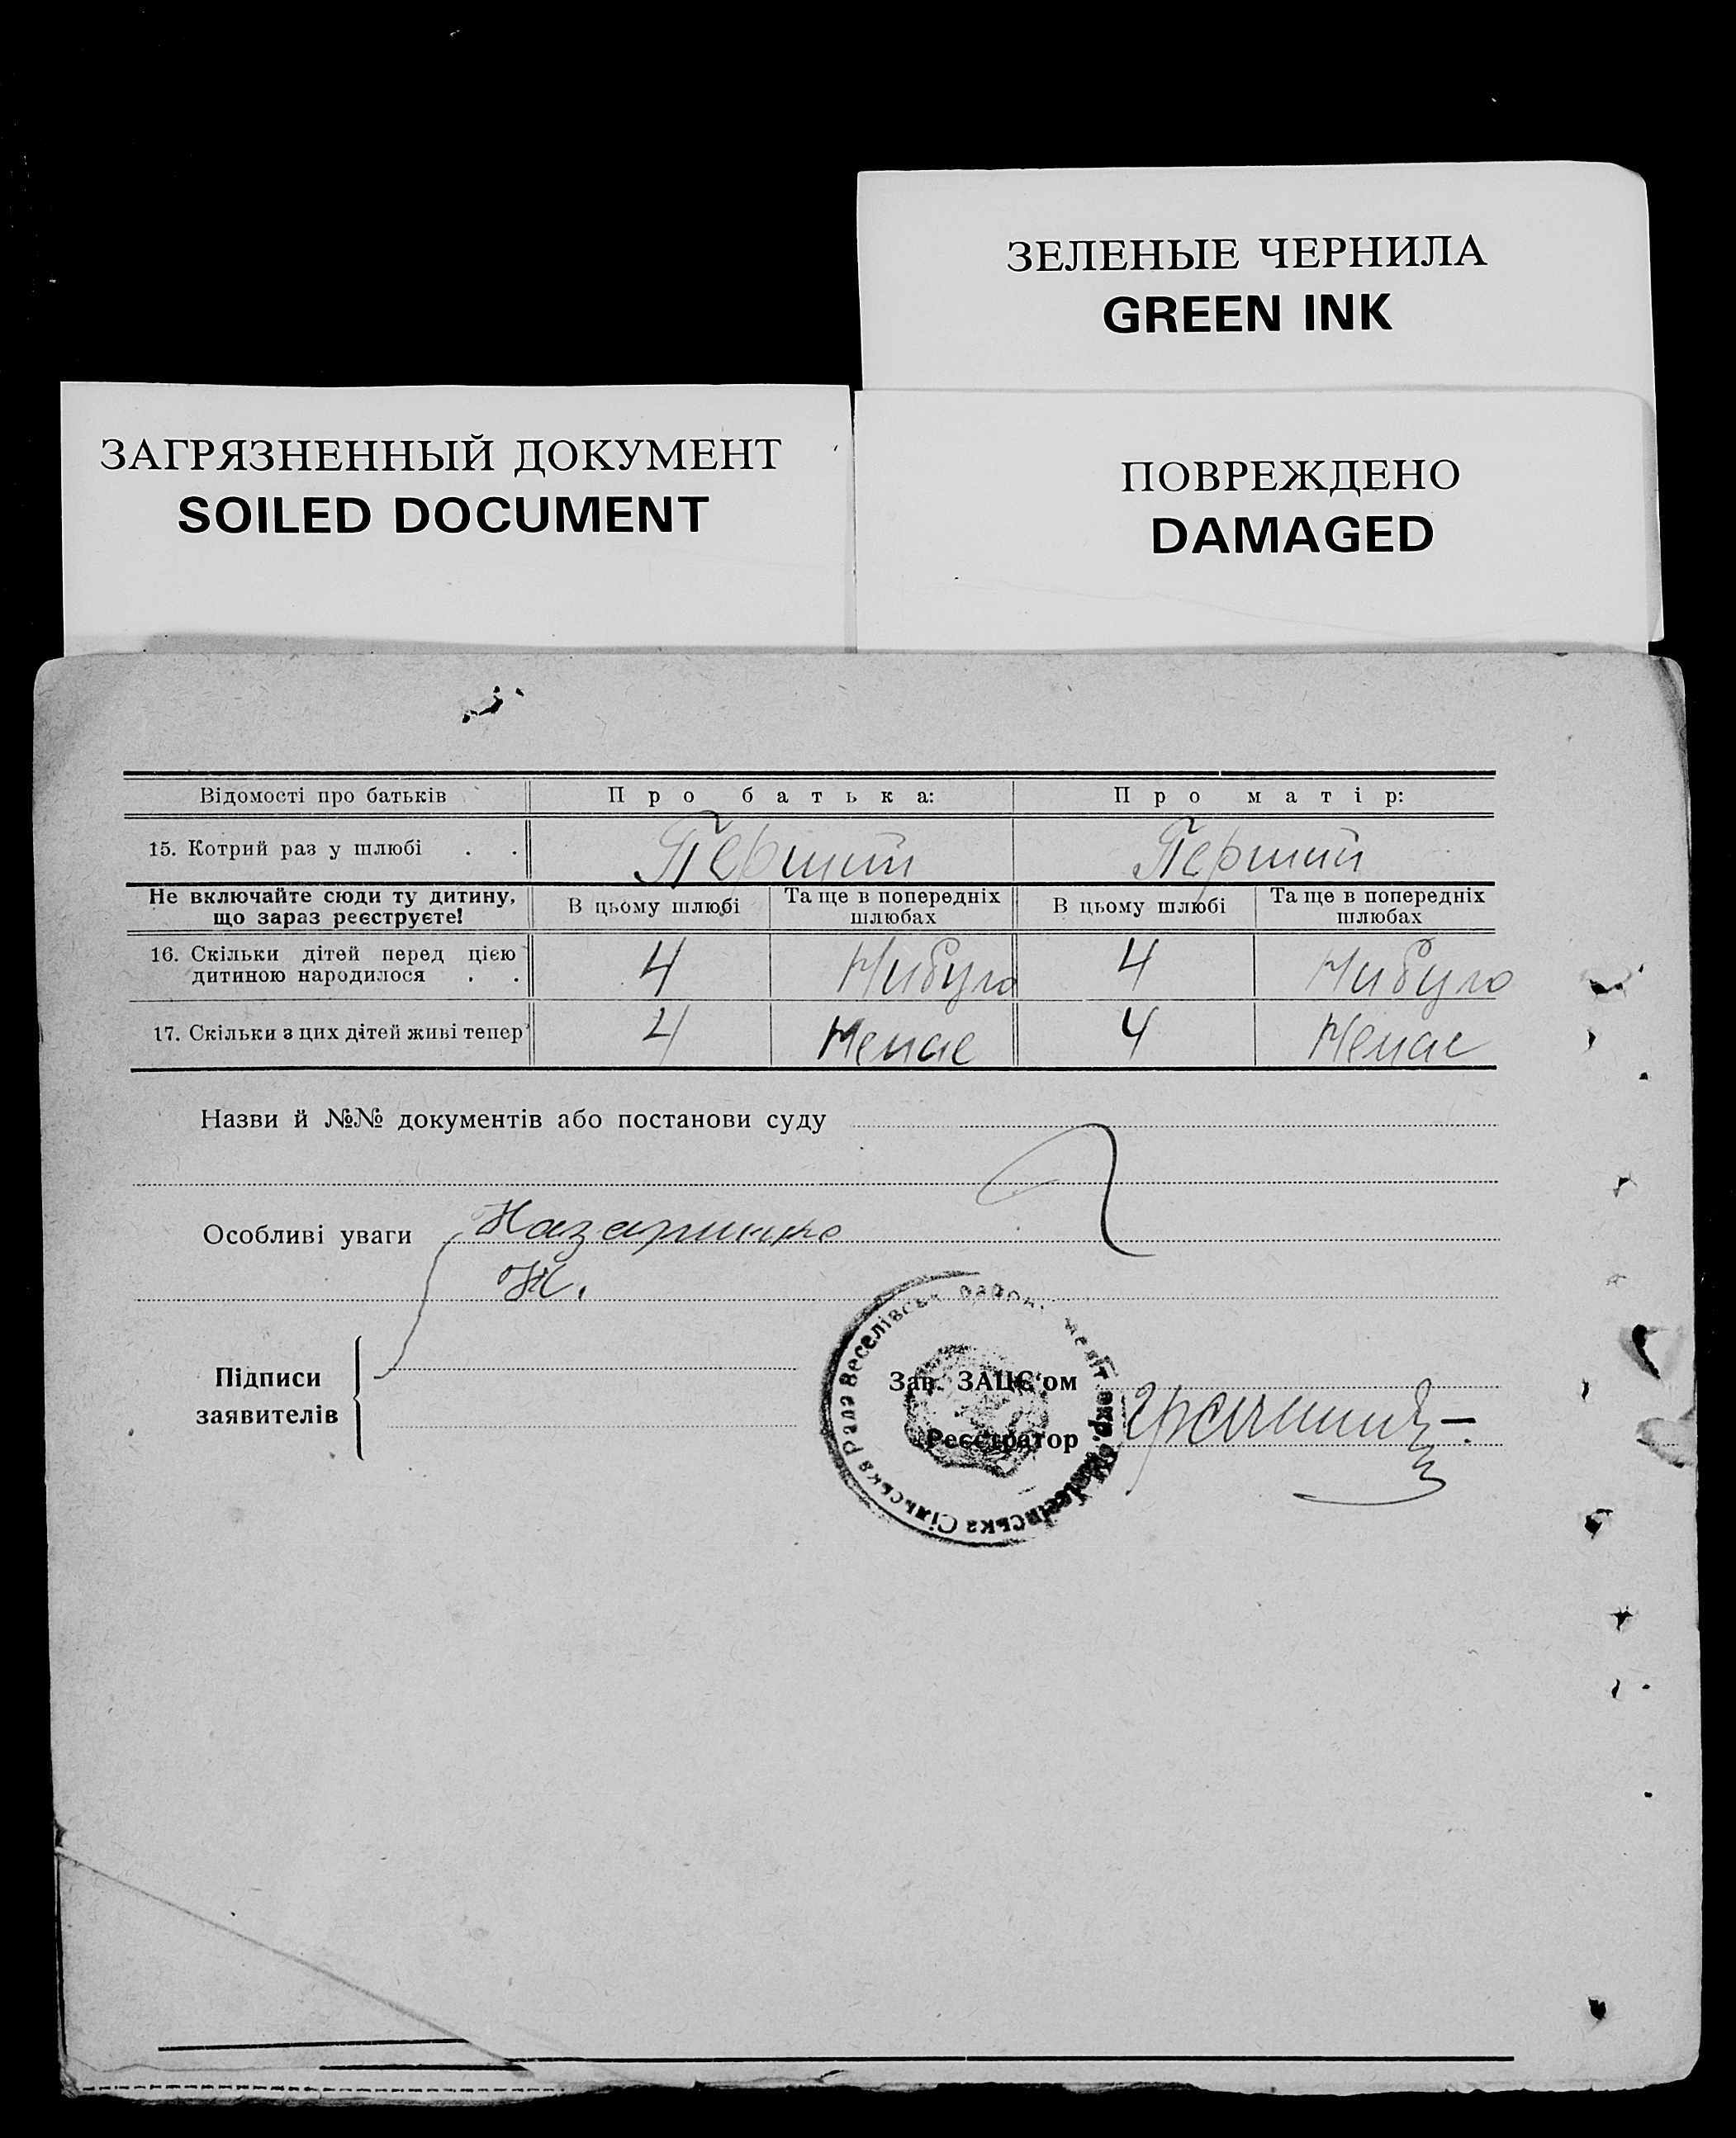 ЗЕЛЕНЫЕ ЧЕРНИЛА
GREEN INK
ЗАГРЯЗНЕННЫЙ ДОКУМЕНТ
SOILED DOCUMENT
ПОВРЕЖДЕНО
DAMAGED
Відомості про батьків Про батька: Про матір:
15. Котрий раз у шлюбі . . Перший Перший
Не включайте сюди ту дитину, що зараз реєструєте! В цьому шлюбі Та ще в попередніх шлюбах В цьому шлюбі Та ще в попередніх шлюбах
16. Скільки дітей перед цією
дитиною народилося . . 4 Нибуло 4 Нибуло
17. Скільки з цих дітей живі тепер 4 Немає 4 Немає
Назви й №№ документів або постанови суду
Особливі уваги
Н.
Підписи
заявителів
Зав. ЗАЦС'ом
Реєстратор
Сільська Рада Веселівськ район. окр.